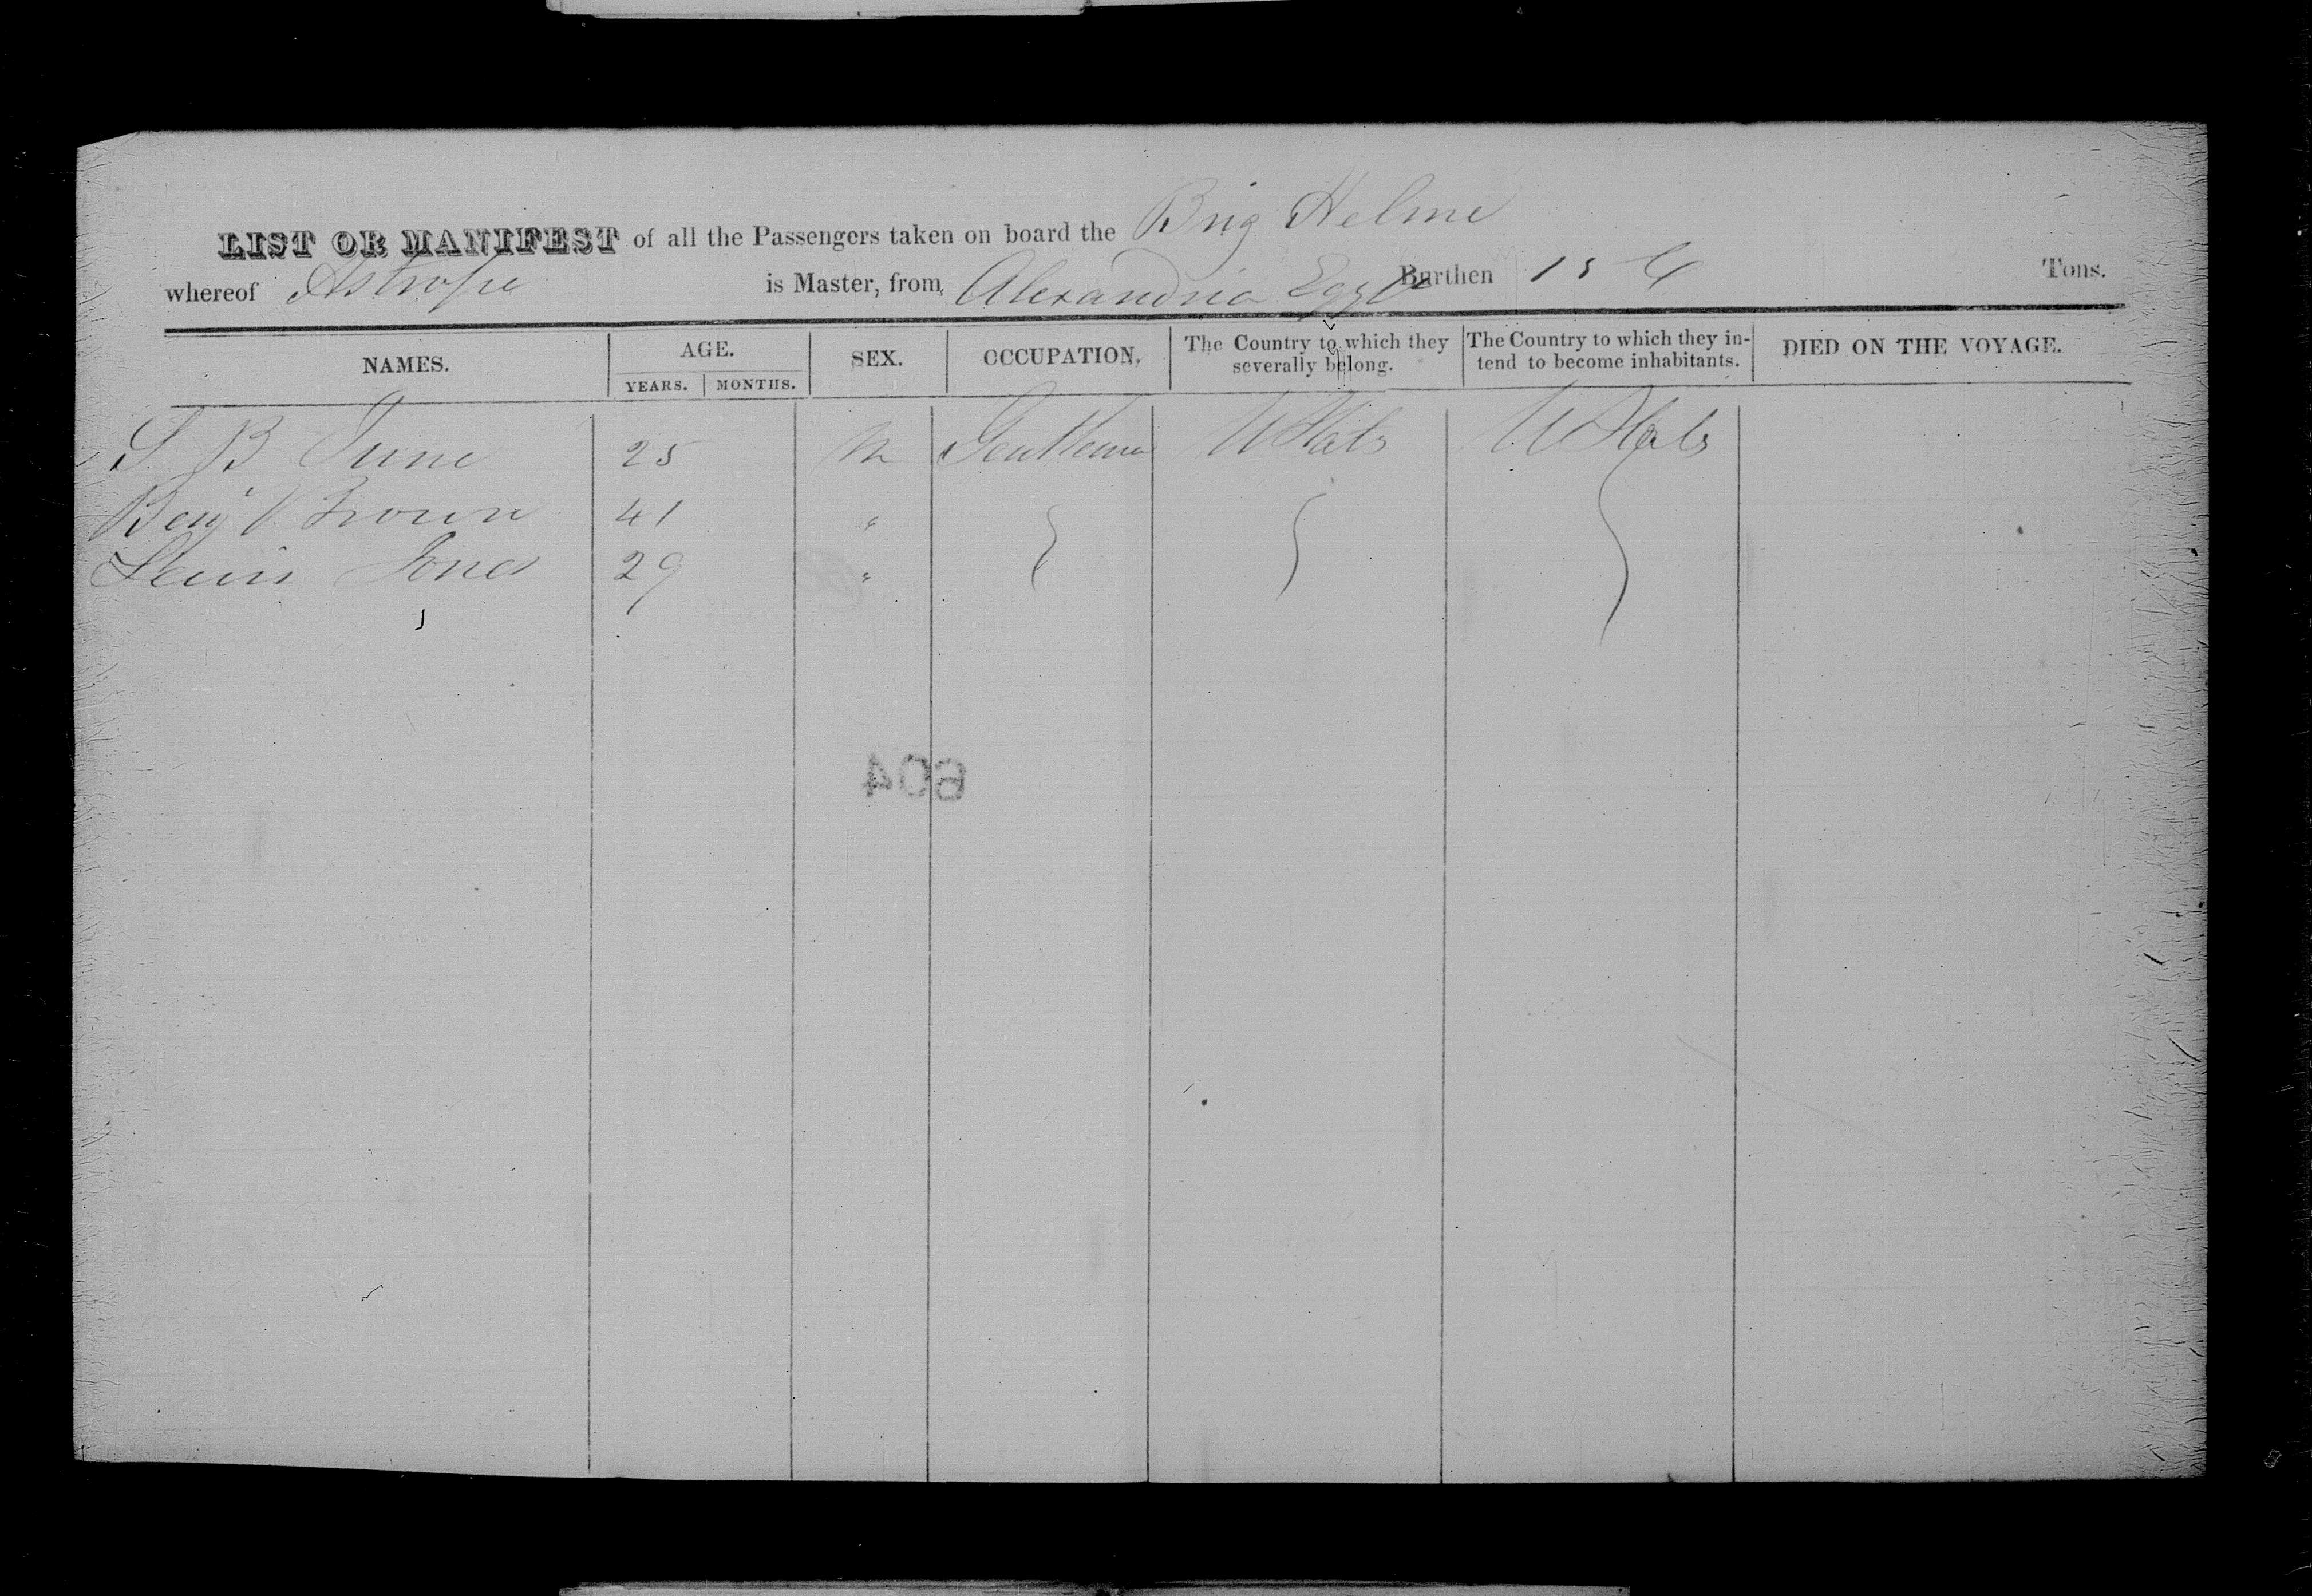 LIST OR MANIFEST of all the Passengers taken on board the Brig Helme
whereof Astrope is Master, from, Alexandria Egypt Burthen 156 Tons.
NAMES. AGE. SEX. OCCUPATION. The Country to which they severally belong. The Country to which they intend to become inhabitants. DIED ON THE VOYAGE.
YEARS. MONTHS.
S. B June 25 M Gentleman U States U States
Benj Brown 41 "
Lewis Jones 29 "
604